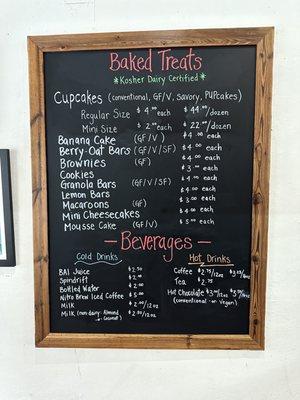 Baked Treats
*Kosher Dairy Certified*
Cupcakes (conventional, GF/V, savory, PUPcakes)
Regular Size $4.00 each $44.00/dozen
Mini Size $2.00 each $22.00/dozen
Banana Cake (GF/V) $4.00 each
Berry-Oat Bars (GF/V/SF) $4.00 each
Brownies (GF) $4.00 each
Cookies $3.00 each
Granola Bars (GF/V/SF) $4.00 each
Lemon Bars $4.00 each
Macaroons (GF) $3.00 each
Mini Cheesecakes $4.00 each
Mousse Cake (GF/V) $5.00 each
— Beverages —
Cold Drinks
BAI Juice $2.50
Spindrift
Bottled Water $2.00
Nitro Brew Iced Coffee $5.00
Milk $2.00/12oz
Milk (non-dairy: Almond $2.50/12oz
Coconut)
Hot Drinks
Coffee $2.75/12oz
Tea $2.75
Hot Chocolate $3.00/12oz
(conventional or Vegan)